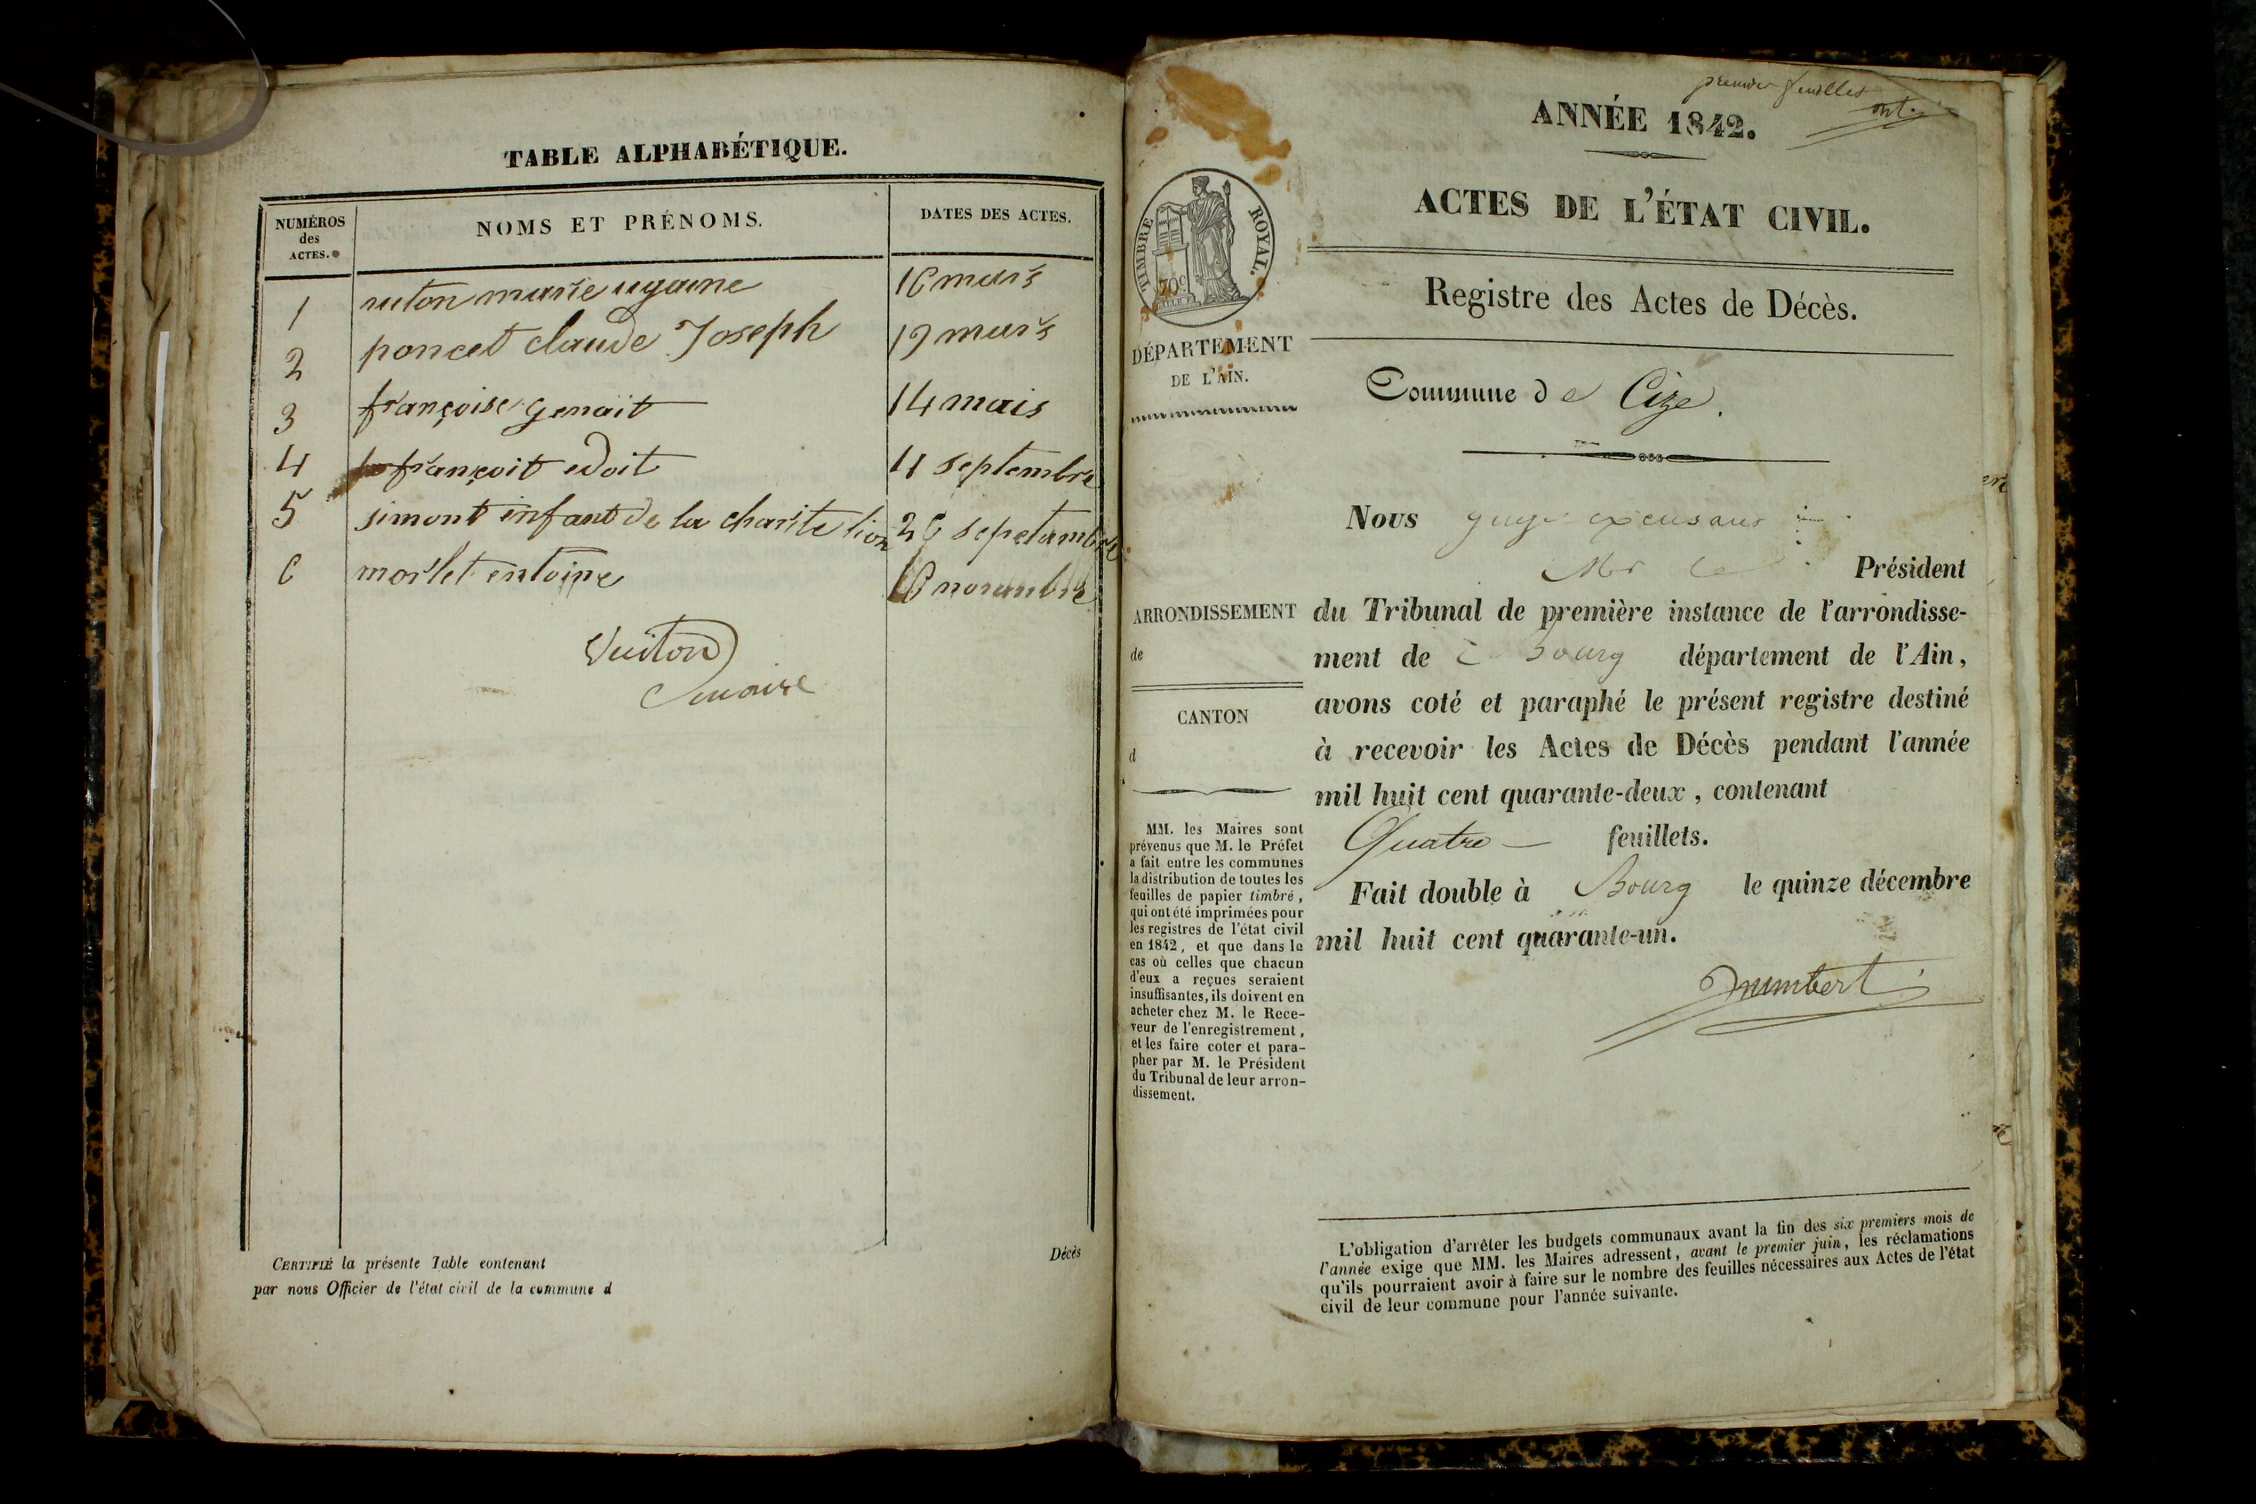 TABLE ALPHABÉTIQUE.
NUMÉROS des ACTES. NOMS ET PRÉNOMS. DATES DES ACTES.
1 16 mars
2 poncet claude Joseph 19 mars
3 françoise genoit 14 mais
4 françoit edoit 11 septembre
5 simont infant de la charite lion 26 sepetambre
6 morlet entoine
Vuiton
maire
CERTIFIÉ la présente Table contenant
par nous Officier de l'état civil de la commune d
Décès
premier feuillet
ANNÉE 1842.
ACTES DE L'ÉTAT CIVIL.
TIMBRE ROYAL.
70c
Registre des Actes de Décès.
DÉPARTEMENT
DE L'AIN.
Commune de Cize.
Nous
Mr le Président
ARRONDISSEMENT
de
CANTON
d
du Tribunal de première instance de l'arrondisse-
ment de Bourg département de l'Ain,
avons coté et paraphé le présent registre destiné
à recevoir les Actes de Décès pendant l'année
mil huit cent quarante-deux, contenant
Quatre feuillets.
Fait double à Bourg le quinze décembre
mil huit cent quarante-un.
MM. les Maires sont
prévenus que M. le Préfet
a fait entre les communes
la distribution de toutes les
feuilles de papier timbré,
qui ont été imprimées pour
les registres de l'état civil
en 1842, et que dans le
cas où celles que chacun
d'eux a reçues seraient
insuffisantes, ils doivent en
acheter chez M. le Rece-
veur de l'enregistrement,
et les faire coter et para-
pher par M. le Président
du Tribunal de leur arron-
dissement.
L'obligation d'arrêter les budgets communaux avant la fin des six premiers mois de
l'année exige que MM. les Maires adressent, avant le premier juin, les réclamations
qu'ils pourraient avoir à faire sur le nombre des feuilles nécessaires aux Actes de l'état
civil de leur commune pour l'année suivante.